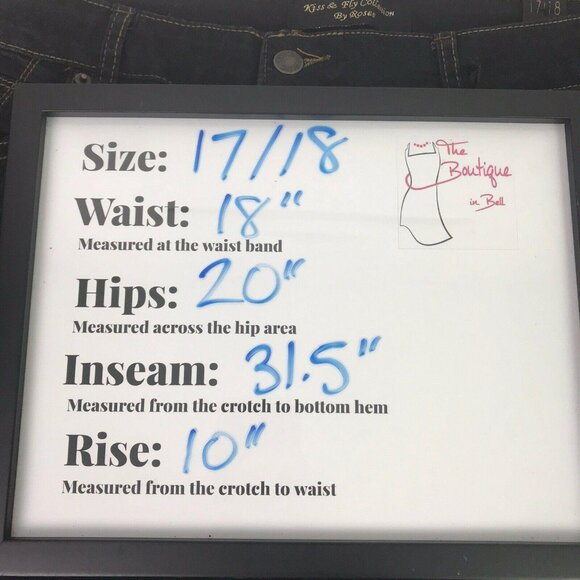 Kiss & Fly Collection
By Roses
17/18
Size: 17/18
The
Boutique
in Bell
Waist: 18"
Measured at the waist band
Hips: 20"
Measured across the hip area
Inseam: 31.5"
Measured from the crotch to bottom hem
Rise: 10"
Measured from the crotch to waist